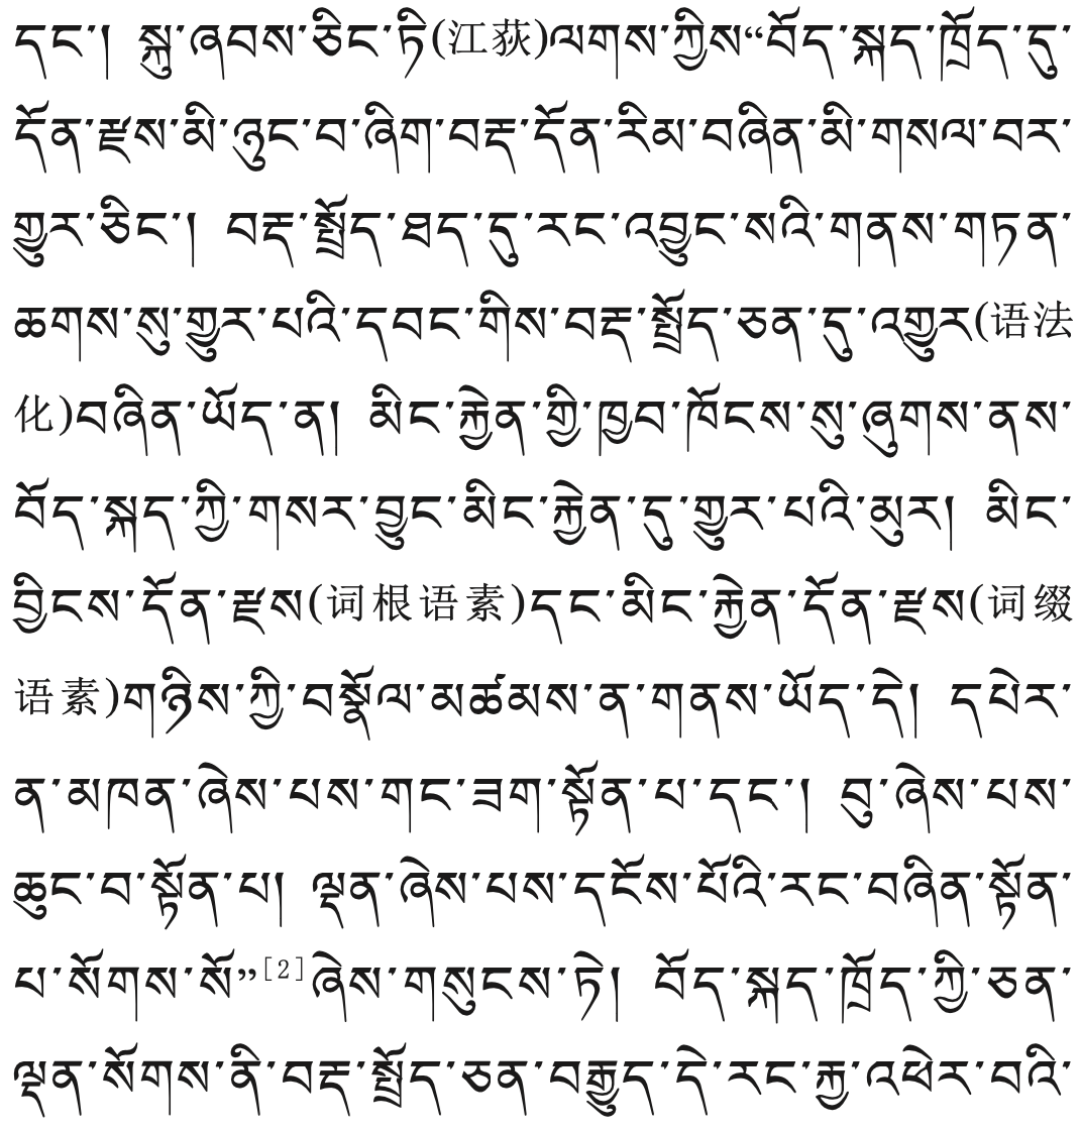 དང་། སྐུ་ཞབས་ཅིང་ཏི(江荻)ལགས་ཀྱིས“བོད་སྐད་ཁྲོད་དུ་
དོན་རྫས་མི་ཉུང་བ་ཞིག་བརྡ་དོན་རིམ་བཞིན་མི་གསལ་བར་
གྱུར་ཅིང་། བརྡ་སྤྲོད་ཐད་དུ་རང་འབྱུང་སའི་གནས་གཏན་
ཆགས་སུ་གྱུར་པའི་དབང་གིས་བརྡ་སྤྲོད་ཅན་དུ་འགྱུར(语法
化)བཞིན་ཡོད་ན། མིང་རྐྱེན་གྱི་ཁྱབ་ཁོངས་སུ་ཞུགས་ནས་
བོད་སྐད་ཀྱི་གསར་བྱུང་མིང་རྐྱེན་དུ་གྱུར་པའི་མུར། མིང་
བྱིངས་དོན་རྫས(词根语素)དང་མིང་རྐྱེན་དོན་རྫས(词缀
语素)གཉིས་ཀྱི་བསྣོལ་མཚམས་ན་གནས་ཡོད་དེ། དཔེར་
ན་མཁན་ཞེས་པས་གང་ཟག་སྟོན་པ་དང་། བུ་ཞེས་པས་
ཆུང་བ་སྟོན་པ། ལྡན་ཞེས་པས་དངོས་པོའི་རང་བཞིན་སྟོན་
པ་སོགས་སོ”[2]ཞེས་གསུངས་ཏེ། བོད་སྐད་ཁྲོད་ཀྱི་ཅན་
ལྡན་སོགས་ནི་བརྡ་སྤྲོད་ཅན་བརྒྱུད་དེ་རང་རྐྱ་འཕེར་བའི་